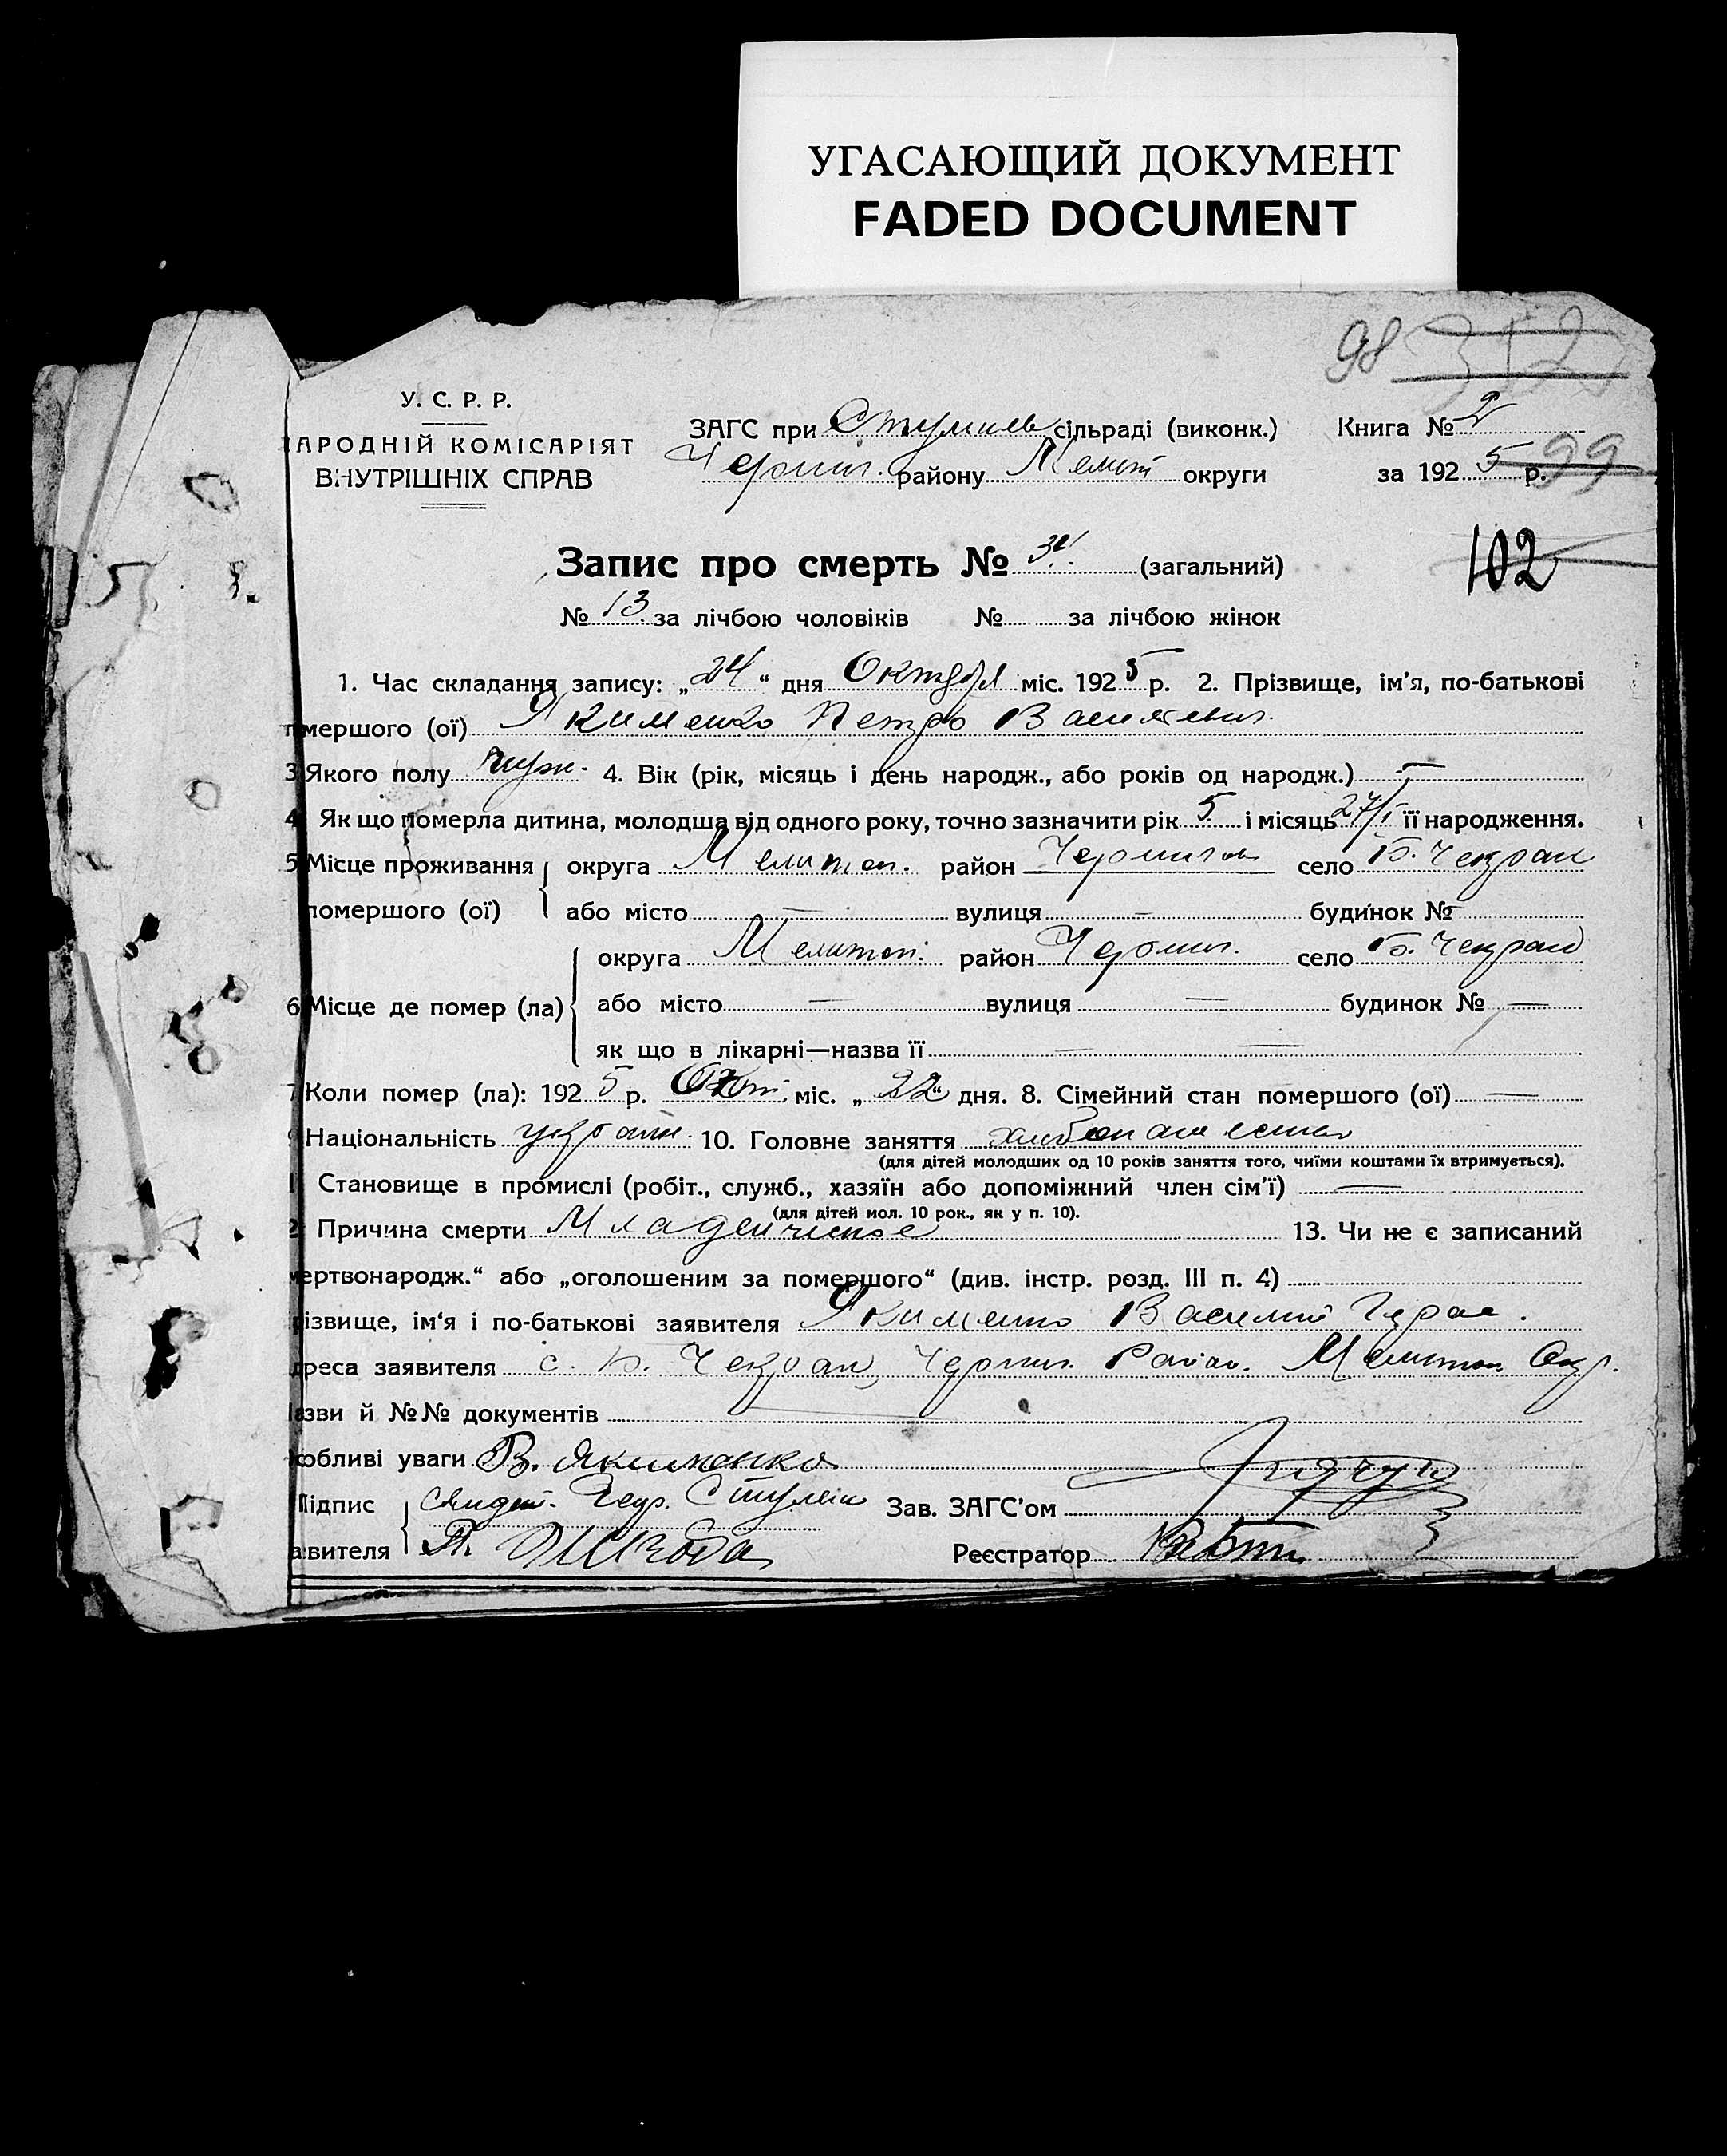 УГАСАЮЩИЙ ДОКУМЕНТ
FADED DOCUMENT
98 312
У. С. Р. Р.
НАРОДНІЙ КОМІСАРІЯТ
ВНУТРІШНІХ СПРАВ
ЗАГС при сільраді (виконк.)
Черниг. району Мелит округи
Книга № 2
за 192 5 р. 99
Запис про смерть № (загальний)
102
№ 13 за лічбою чоловіків № за лічбою жінок
1. Час складання запису: „24“ дня Октября міс. 1925 р. 2. Прізвище, ім'я, по-батькові
помершого (ої) Якименко Петро Васильевич.
3 Якого полу муж. 4. Вік (рік, місяць і день народж., або років од народж.) —
4 Як що померла дитина, молодша від одного року, точно зазначити рік 5 і місяць 27/I її народження.
5 Місце проживання округа Мелитоп. район Чернигов село Б. Чекрак
помершого (ої) або місто — вулиця — будинок № —
округа Мелитоп. район Черниг. село Б. Чекрак
6 Місце де помер (ла) або місто — вулиця — будинок № —
як що в лікарні—назва її — —
7 Коли помер (ла): 192 5 р. Окт. міс. „22“ дня. 8. Сімейний стан помершого (ої) —
9 Національність украин. 10. Головне заняття
(для дітей молодших од 10 років заняття того, чиїми коштами їх втримується).
Становище в промислі (робіт., служб., хазяїн або допоміжний член сім'ї) —
(для дітей мол. 10 рок., як у п. 10).
2 Причина смерти Младенческое 13. Чи не є записаний
мертвонародж.“ або „оголошеним за помершого“ (див. інстр. розд. III п. 4)
різвище, ім'я і по-батькові заявителя Якименко Василий Герас.
дреса заявителя с. Б. Чекрак, Черниг. Район. Мелитоп. Окр.
азви й №№ документів
собливі уваги В. Якименко
Підпис Зав. ЗАГС'ом
авителя Реєстратор